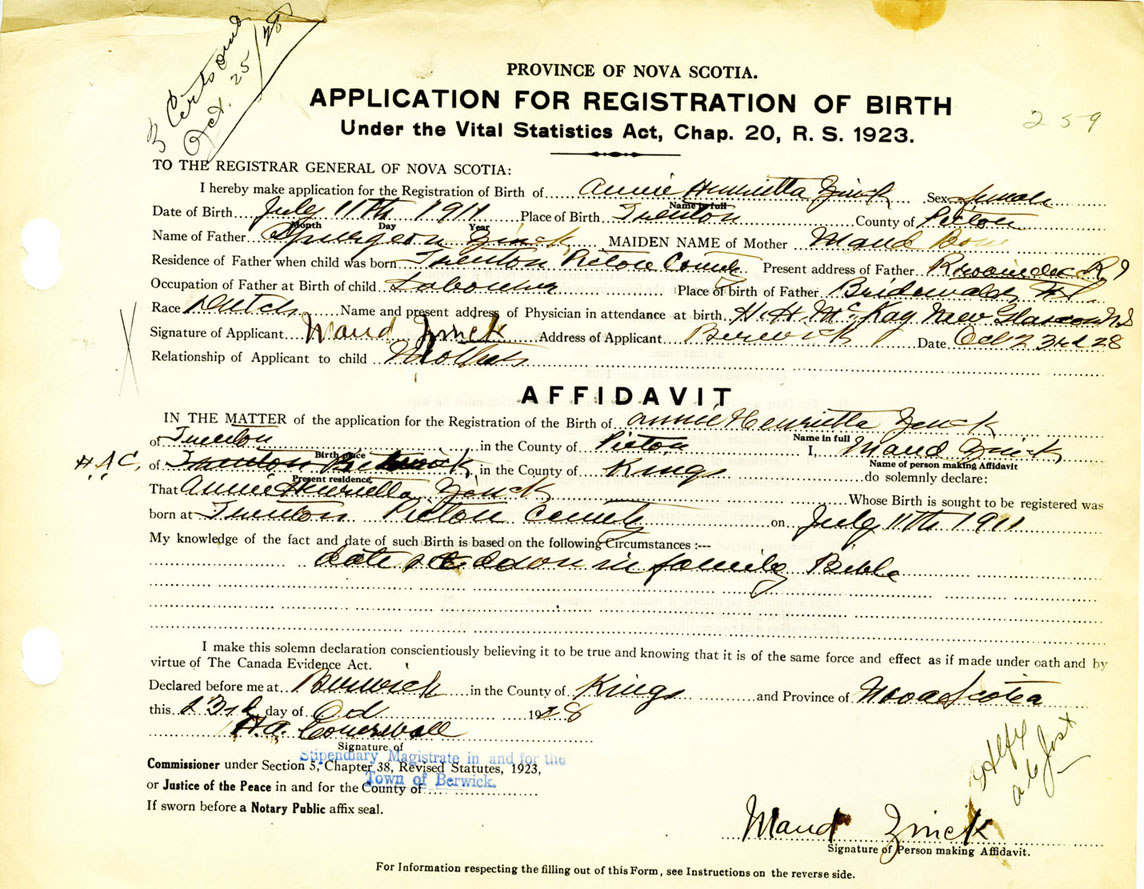 3 Certs and
Oct. 25/28
PROVINCE OF NOVA SCOTIA.
APPLICATION FOR REGISTRATION OF BIRTH
Under the Vital Statistics Act, Chap. 20, R. S. 1923.
259
TO THE REGISTRAR GENERAL OF NOVA SCOTIA:
I hereby make application for the Registration of Birth of Annie Henrietta Zinck Sex female
Name in full
Date of Birth July 11th 1911 Place of Birth Trenton County of Pictou
Month Day Year
Name of Father Spurgeon Zinck MAIDEN NAME of Mother Maud
Residence of Father when child was born Trenton Pictou County Present address of Father R I
Occupation of Father at Birth of child Labourer Place of birth of Father
Race Dutch Name and present address of Physician in attendance at birth H. H. McKay New Glasgow N S
Signature of Applicant Maud Zinck Address of Applicant Berwick Date Oct 23rd 28
Relationship of Applicant to child Mother
AFFIDAVIT
IN THE MATTER of the application for the Registration of the Birth of Annie Henrietta Zinck
Name in full
of Trenton in the County of Pictou I, Maud Zinck
Birth place Name of person making Affidavit
H.A.C. of Trenton Berwick, in the County of Kings do solemnly declare:
Present residence
That Annie Henrietta Zinck Whose Birth is sought to be registered was
born at Trenton Pictou County on July 11th 1911
My knowledge of the fact and date of such Birth is based on the following Circumstances :---
date set down in family Bible
I make this solemn declaration conscientiously believing it to be true and knowing that it is of the same force and effect as if made under oath and by
virtue of The Canada Evidence Act.
Declared before me at Berwick in the County of Kings and Province of Nova Scotia
this 23rd day of Oct 1928
H.A.
Signature of
Stipendiary Magistrate in and for the
Commissioner under Section 5, Chapter 38, Revised Statutes, 1923,
Town of Berwick.
or Justice of the Peace in and for the County of
If sworn before a Notary Public affix seal.
Maud Zinck
Signature of Person making Affidavit.
For Information respecting the filling out of this Form, see Instructions on the reverse side.